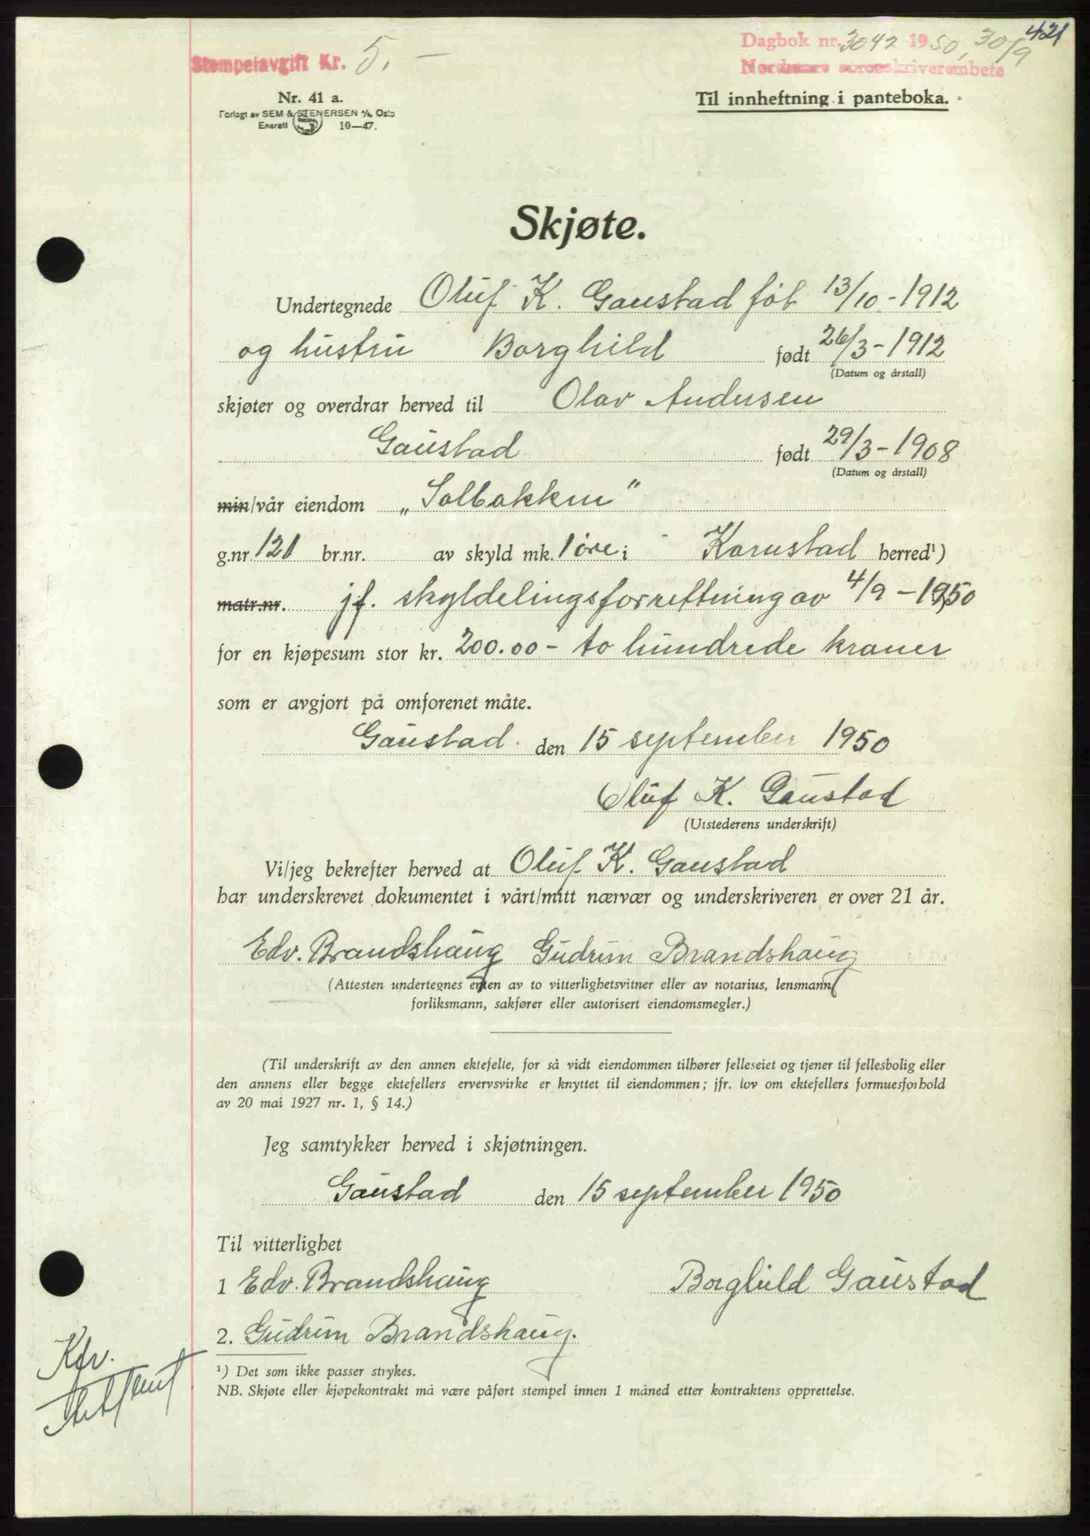 421
Stempelavgift Kr. 5.—
Dagbok nr. 3042 1950, 30/9
Nordmøre sorenskriverembete
Nr. 41 a.
Forlagt av SEM & STENERSEN A/S, Oslo
Enerett 10—47.
Til innheftning i panteboka.
Skjøte.
Undertegnede Oluf K. Gaustad føt 13/10.-1912
og hustru Borghild født 26/3-1912
(Datum og årstall)
skjøter og overdrar herved til Olav Andersen
Gaustad født 29/3-1908
(Datum og årstall)
min/vår eiendom „Solbakken"
g.nr. 121 br.nr. av skyld mk. 1 øre i Kornstad herred¹)
matr.nr. jf. skyldelingsforretning av 4/9-1950
for en kjøpesum stor kr. 200.00- to hundrede kroner
som er avgjort på omforenet måte.
Gaustad. den 15 september 1950
Oluf K. Gaustad
(Utstederens underskrift)
Vi/jeg bekrefter herved at Oluf K. Gaustad
har underskrevet dokumentet i vårt/mitt nærvær og underskriveren er over 21 år.
Edv. Brandshaug Gudrun Brandshaug
(Attesten undertegnes enten av to vitterlighetsvitner eller av notarius, lensmann,
forliksmann, sakfører eller autorisert eiendomsmegler.)
(Til underskrift av den annen ektefelte, for så vidt eiendommen tilhører felleseiet og tjener til fellesbolig eller
den annens eller begge ektefellers ervervsvirke er knyttet til eiendommen; jfr. lov om ektefellers formuesforhold
av 20 mai 1927 nr. 1, § 14.)
Jeg samtykker herved i skjøtningen.
Gaustad den 15 september 1950
Til vitterlighet
1 Edv. Brandshaug Borghild Gaustad
2. Gudrun Brandshaug.
Kfr.
¹) Det som ikke passer strykes.
NB. Skjøte eller kjøpekontrakt må være påført stempel innen 1 måned etter kontraktens opprettelse.